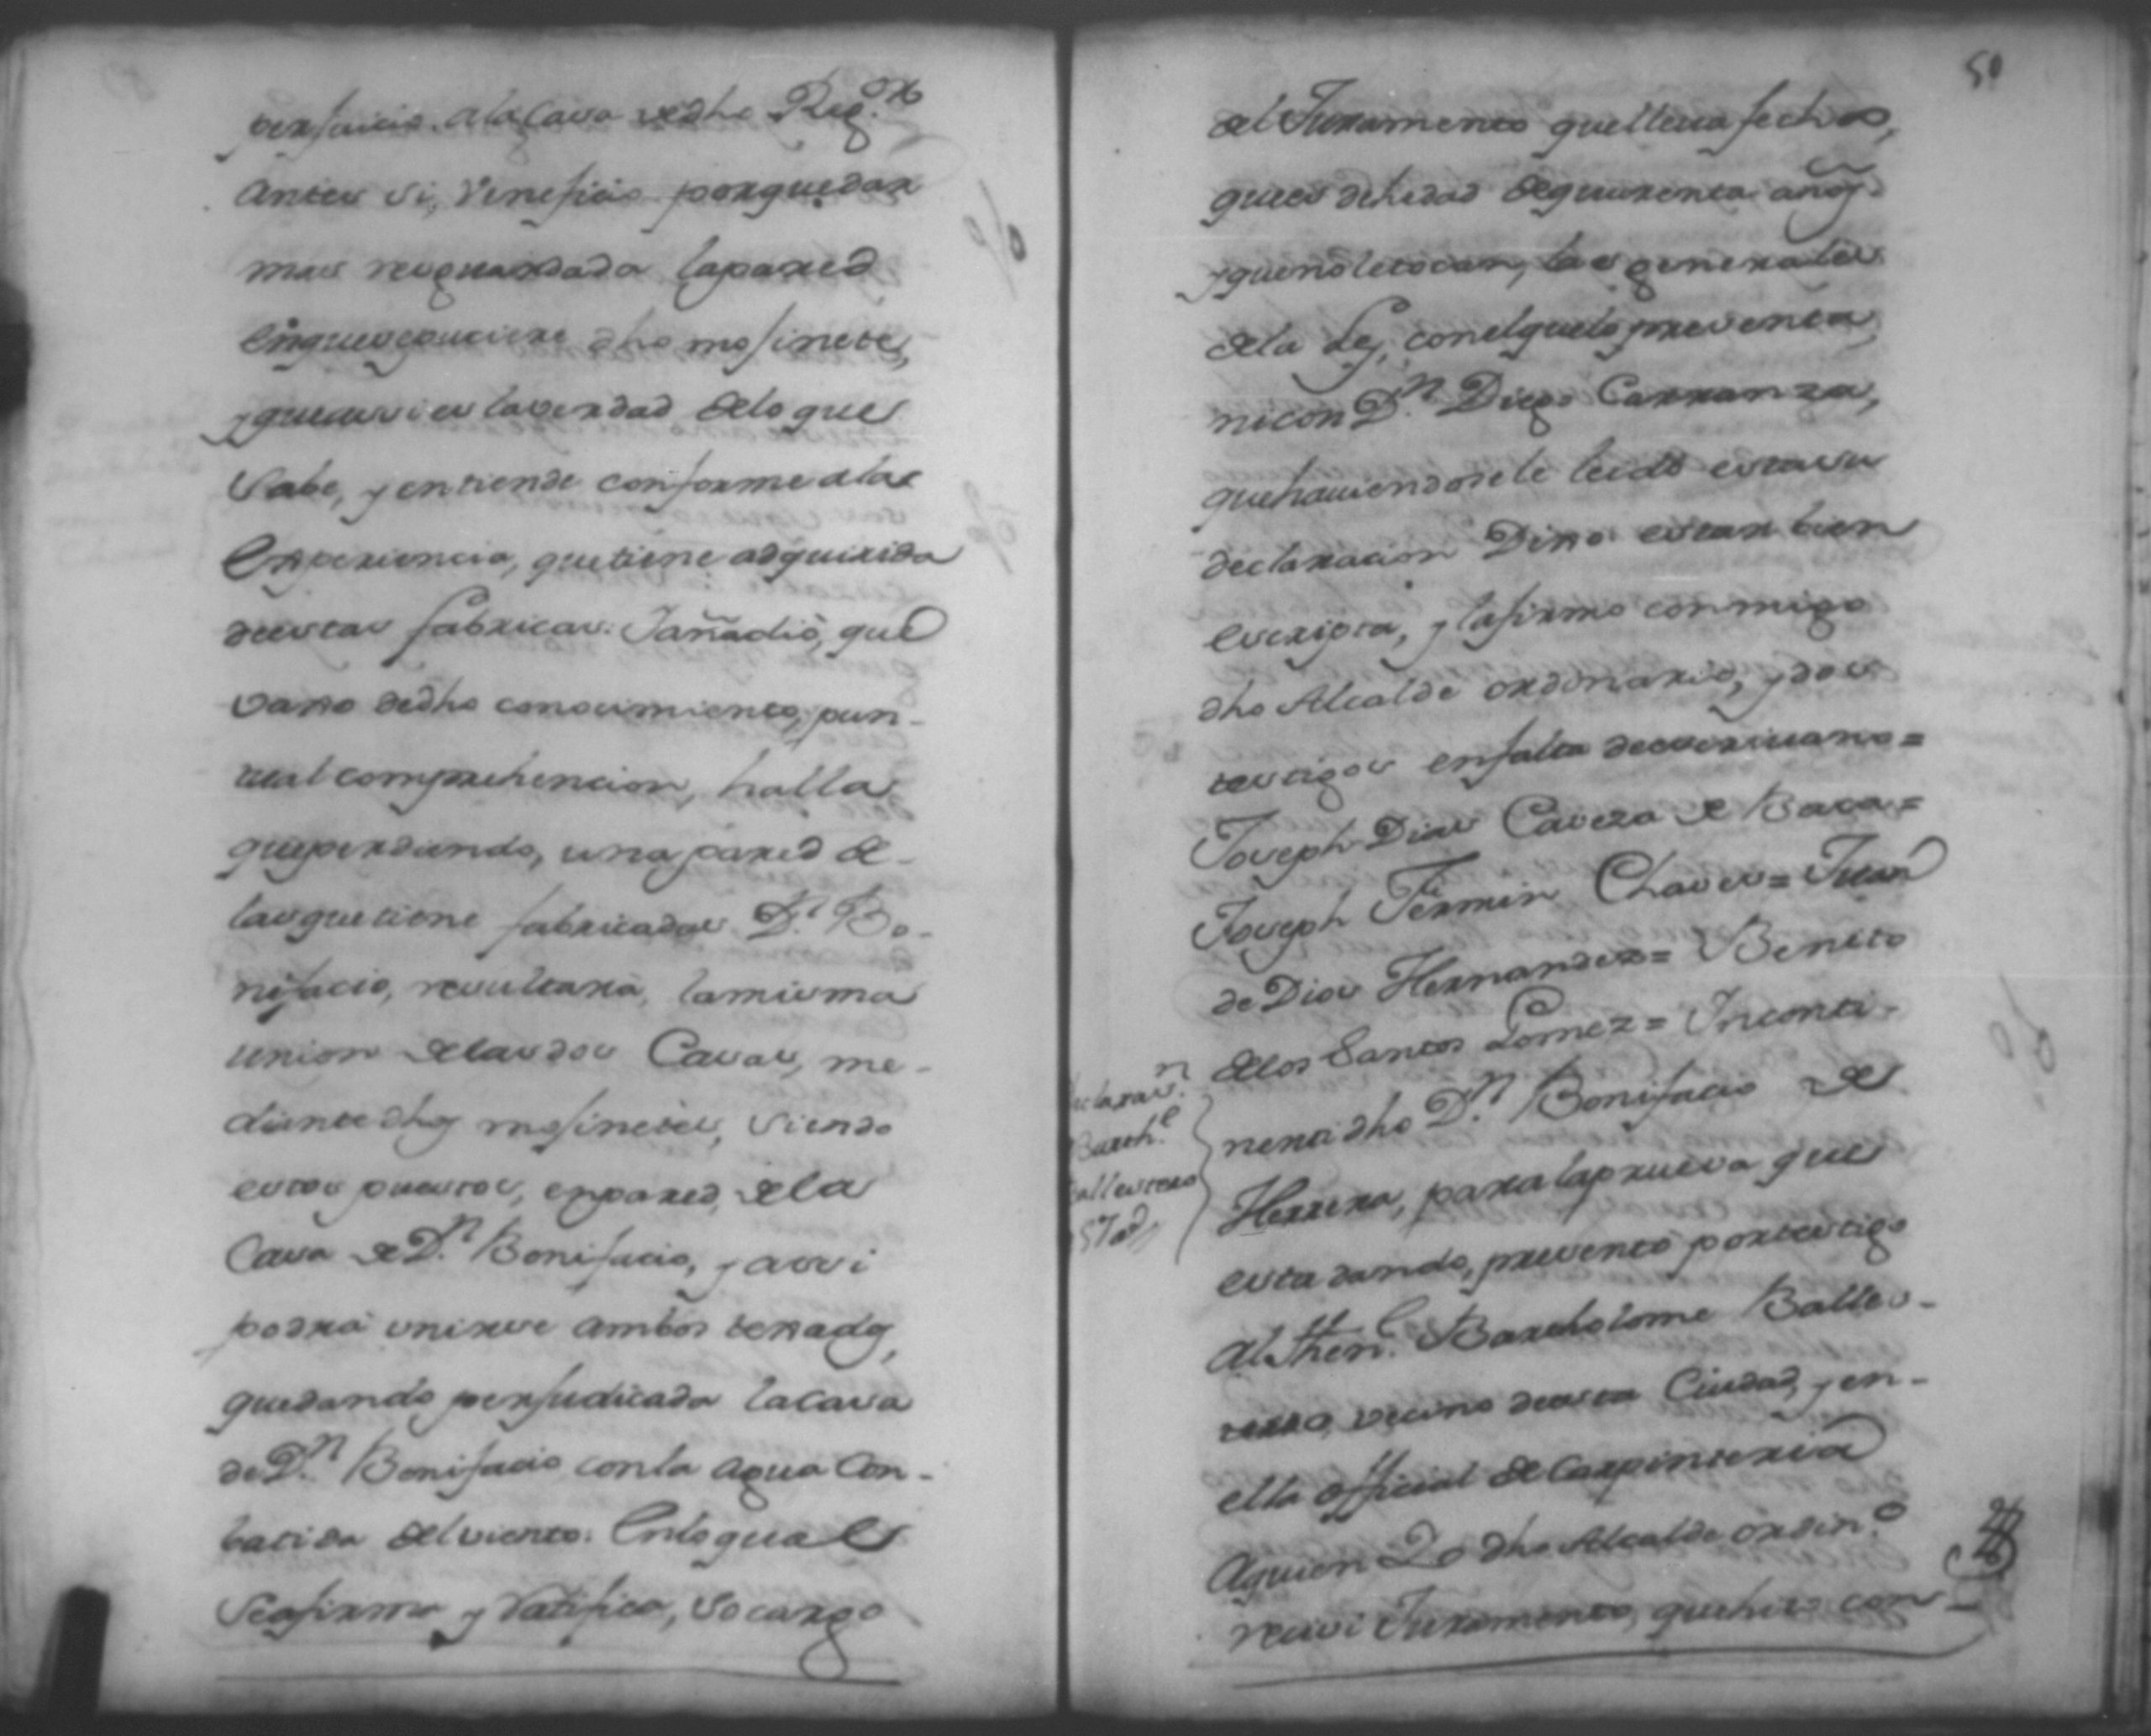 perjuicio. a la Casa de dho Reg.or
antes si, Veneficio porquedar
mas resguardada lapared
enquesepusiere dho mojinete,
yqueassi es laverdad delo que
Sabe, y entiende conforme alas
Experiencia, quetiene adquirida
deestas fabricas: Iañadió, que
vajo dedho conocimiento, pun-
tual comprehencion, halla
queperdiendo, una pared de
lasquetiene fabricadas D.n Bo-
nifacio, resultará, lamisma
union delasdos Casas, me-
diante dhos mojinetes, siendo
estos puestos, enpared, dela
Casa de D.n Bonifacio, y assi
podrá unirse ambos texados,
quedando perjudicada laCasa
de D.n Bonifacio conla agua Con-
batida delviento: Enloqual
Seafirma y Ratifica, So cargo
50
del Juramento quelleva fecho,
quees dehedad dequarenta años
yqueno letocan, las generales
dela Ley, conelquelo presenta,
nicon D.n Diego Carranza,
quehaviendosele leido estasu
declaracion Dixo estar bien
escripta, y lafirmo conmigo
dho Alcalde ordinario, y dos
testigos enfalta deescrivano =
Joseph Dias Caveza de Baca =
Joseph Fermin Chaves = Juan
de Dios Hernandez = Benito
delos Santos Gomez = Inconti-
nenti dho D.n Bonifacio de
Herrera, para laprueva que
esta dando, presentó portestigo
al Then.e Bartholome Balles-
teros, vecino deesta Ciudad, y en-
ella official de Carpinteria
Aquien Io dho Alcalde ordin.o
recivi Juramento, quehizo con
Barth.e